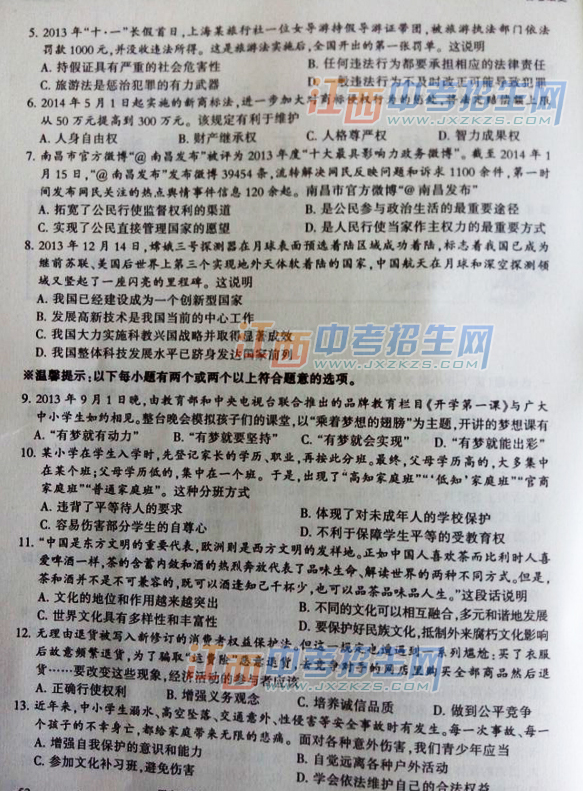 5. 2013 年"十·一"长假首日，上海某旅行社一位女导游持假导游证带团，被旅游执法部门依法
罚款 1000 元，并没收违法所得。这是旅游法实施后，全国开出的第一张罚单。这说明
A. 持假证具有严重的社会危害性 B. 任何违法行为都要承担相应的法律责任
C. 旅游法是惩治犯罪的有力武器 D. 一般违法行为不及时改正可能导致犯罪
6. 2014 年 5 月 1 日起实施的新商标法，进一步加大对商标侵权行为的惩处，将法定赔偿额上限
从 50 万元提高到 300 万元。该规定有利于维护
A. 人身自由权 B. 财产继承权 C. 人格尊严权 D. 智力成果权
7. 南昌市官方微博"@南昌发布"被评为 2013 年度"十大最具影响力政务微博"。截至 2014 年 1
月 15 日，"@南昌发布"发布微博 39454 条，流转解决网民反映问题和诉求 1100 余件，第一时
间发布网民关注的热点舆情事件信息 120 余起。南昌市官方微博"@南昌发布"
A. 拓宽了公民行使监督权利的渠道 B. 是公民参与政治生活的最重要途径
C. 实现了公民直接管理国家的愿望 D. 是人民行使当家作主权力的最重要方式
8. 2013 年 12 月 14 日，嫦娥三号探测器在月球表面预选着陆区域成功着陆，标志着我国已成为
继前苏联、美国后世界上第三个实现地外天体软着陆的国家，中国航天在月球和深空探测领
域又竖起了一座闪亮的里程碑。这说明
A. 我国已经建设成为一个创新型国家
B. 发展高新技术是我国当前的中心工作
C. 我国大力实施科教兴国战略并取得显著成效
D. 我国整体科技发展水平已跻身发达国家前列
※温馨提示：以下每小题有两个或两个以上符合题意的选项。
9. 2013 年 9 月 1 日晚，由教育部和中央电视台联合推出的品牌教育栏目《开学第一课》与广大
中小学生如约相见。整台晚会模拟孩子们的课堂，以"乘着梦想的翅膀"为主题，开讲的梦想课有
A. "有梦就有动力" B. "有梦就要坚持" C. "有梦就会实现" D. "有梦就能出彩"
10. 某小学在学生入学时，先登记家长的学历、职业，再按此分班。最终，父母学历高的，大多集中
在某个班；父母学历低的，集中在一个班。于是，出现了"高知家庭班""'低知'家庭班""官商
家庭班""普通家庭班"。这种分班方式
A. 违背了平等待人的要求 B. 体现了对未成年人的学校保护
C. 容易伤害部分学生的自尊心 D. 不利于保障学生平等的受教育权
11. "中国是东方文明的重要代表，欧洲则是西方文明的发祥地。正如中国人喜欢茶而比利时人喜
爱啤酒一样，茶的含蓄内敛和酒的热烈奔放代表了品味生命、解读世界的两种不同方式。但是，
茶和酒并不是不可兼容的，既可以酒逢知己千杯少，也可以品茶品味品人生。"这段话说明
A. 文化的地位和作用越来越突出 B. 不同的文化可以相互融合，多元和谐地发展
C. 世界文化具有多样性和丰富性 D. 要保护好民族文化，抵制外来腐朽文化影响
12. 无理由退货被写入新修订的消费者权益保护法，但这一规定也遭遇到一系列尴尬：买了衣服
后故意频繁退货，为了骗取"运费险"恶意退货，去竞争对手的网店里购买全部商品然后退
货……要改变这些现象，经济活动的参与者应该
A. 正确行使权利 B. 增强义务观念 C. 培养诚信品质 D. 做到公平竞争
13. 近年来，中小学生溺水、高空坠落、交通意外、性侵害等安全事故时有发生。每一次事故、每一
个孩子的不幸身亡，都给家庭带来无限的悲痛。面对各种意外伤害，我们青少年应当
A. 增强自我保护的意识和能力 B. 自觉远离各种户外活动
C. 参加文化补习班，避免伤害 D. 学会依法维护自己的合法权益
江西中考招生网
JXZKZS.COM
江西中考招生网
JXZKZS.COM
江西中考招生网
WWW.JXZKZS.COM